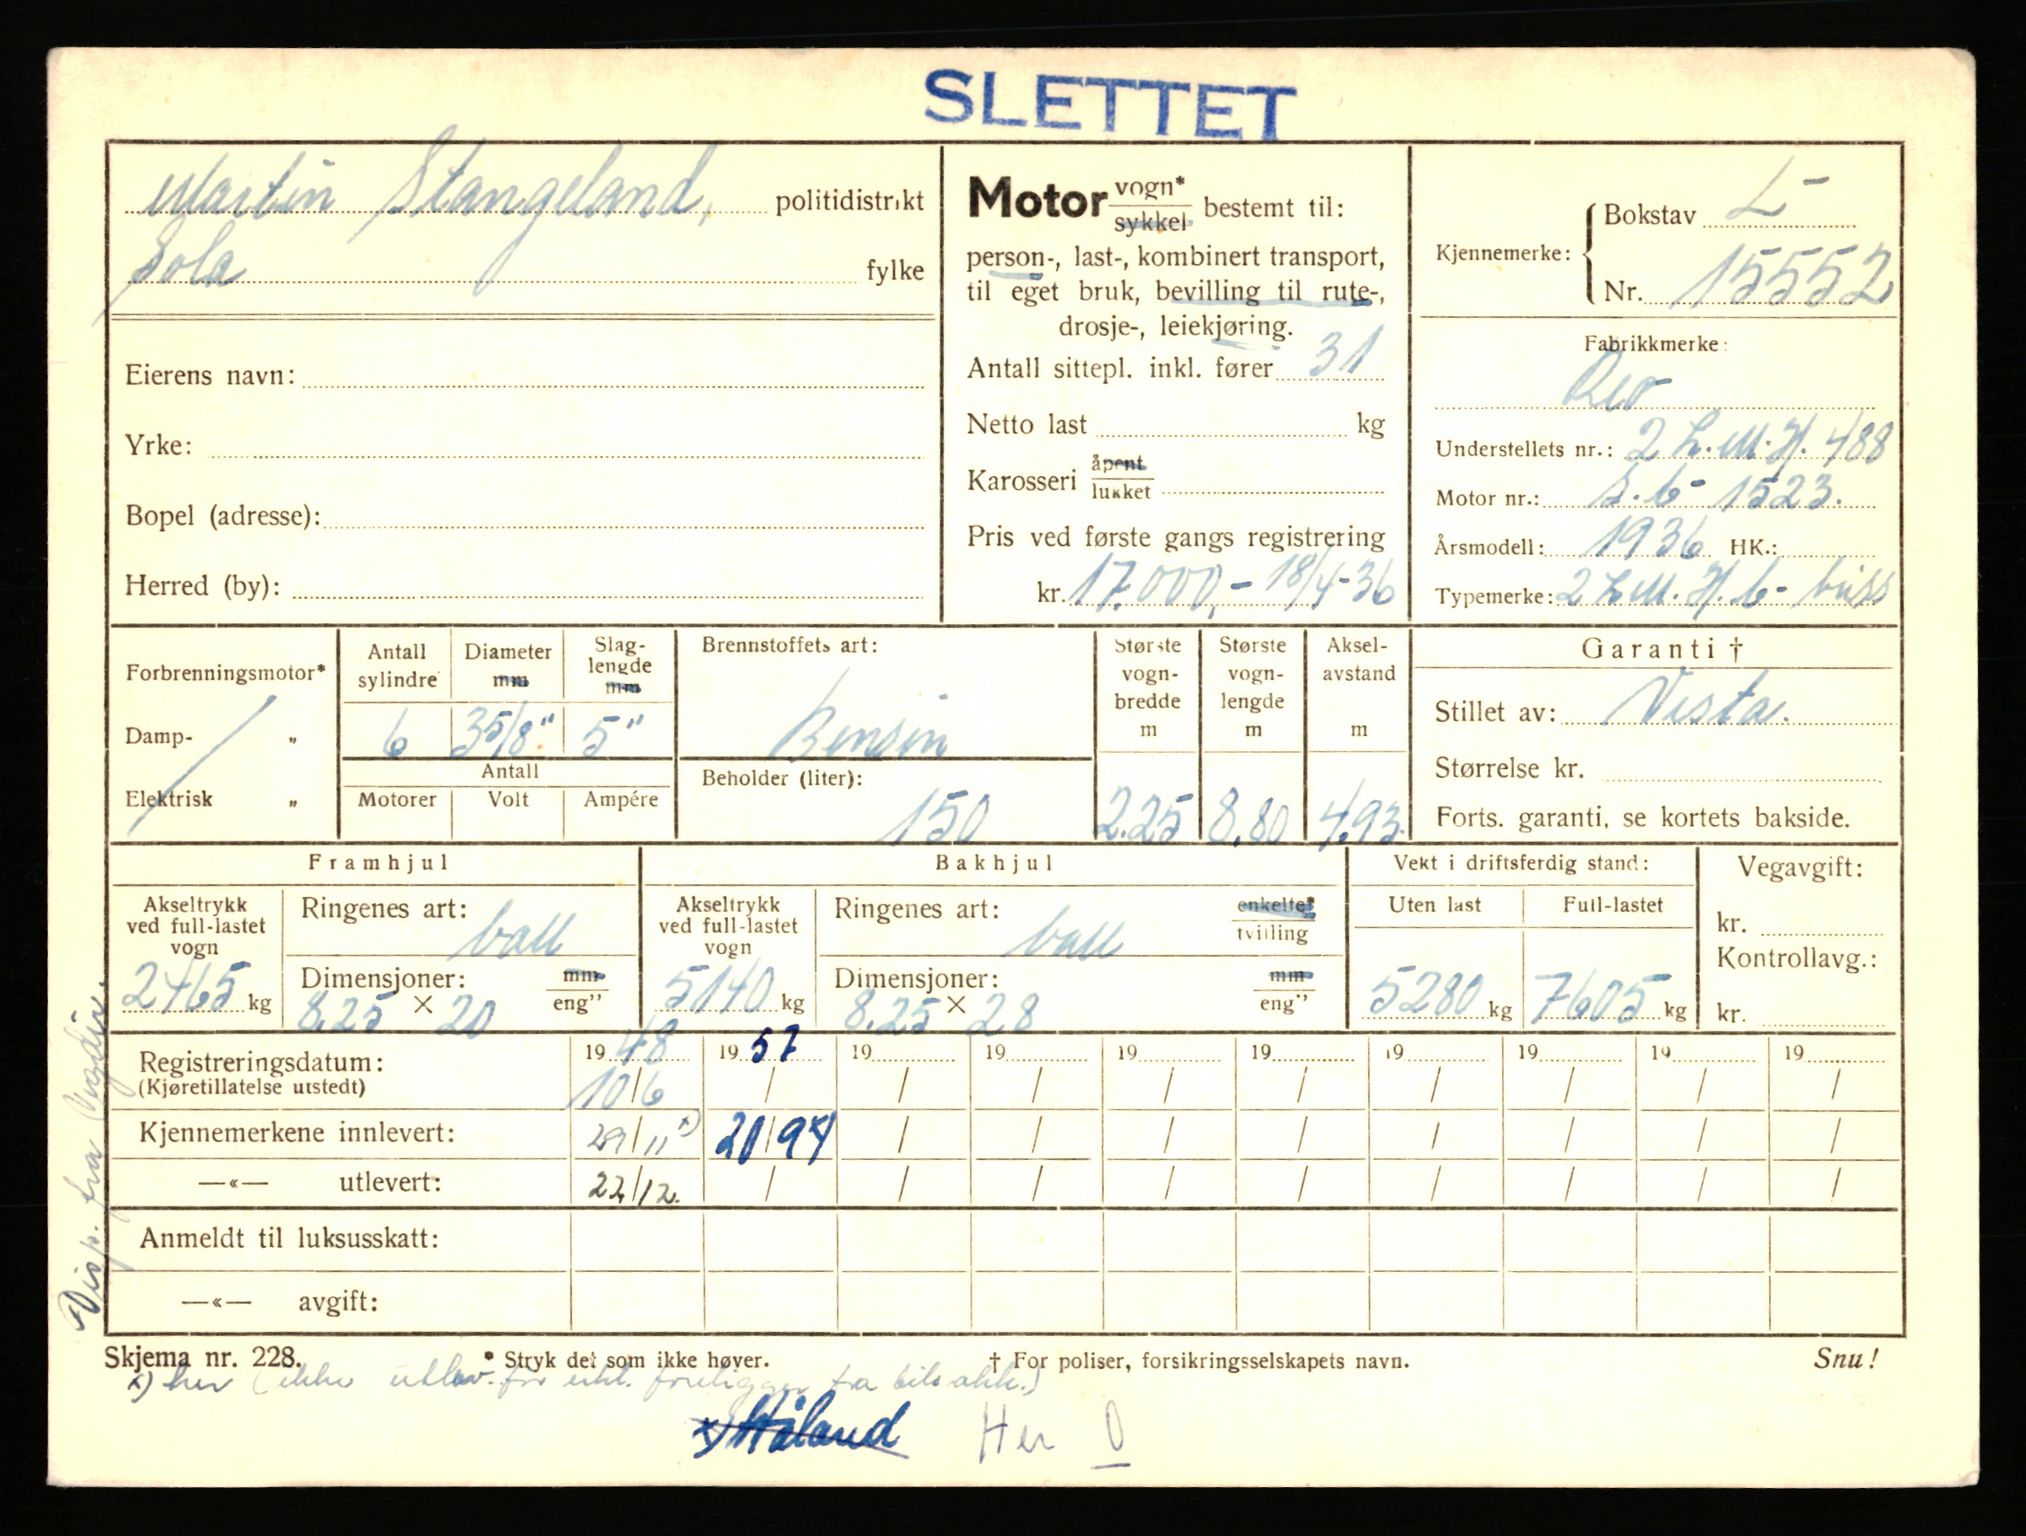 SLETTET
Martin Stangeland, politidistrikt
Sola fylke
Eierens navn:
Yrke:
Bopel (adresse):
Herred (by):
Motor vogn* sykkel bestemt til:
person-, last-, kombinert transport,
til eget bruk, bevilling til rute-,
drosje-, leiekjøring.
Antall sittepl. inkl. fører 31
Netto last kg
Karosseri åpent lukket
Pris ved første gangs registrering
kr. 17.000,- 18/4-36
Kjennemerke: Bokstav L-
Nr. 15552
Fabrikkmerke:
Reo
Understellets nr.: 2 L.M.H. 488
Motor nr.: S.6- 1523.
Årsmodell: 1936 HK.:
Typemerke: 2 L.M.H.6- buss
Forbrenningsmotor*
Damp- „
Elektrisk „
Antall sylindre
6
Diameter mm
3 5/8"
Slag-lengde mm
5"
Antall
Motorer Volt Ampére
Brennstoffets art:
Bensin
Beholder (liter):
150
Største vogn-bredde m
2.25
Største vogn-lengde m
8.80
Aksel-avstand m
4.93
Garanti †
Stillet av: Vesta.
Størrelse kr.
Forts. garanti, se kortets bakside.
Framhjul
Akseltrykk ved full-lastet vogn
2465 kg
Ringenes art: ball
Dimensjoner: mm
8.25 × 20 eng"
Bakhjul
Akseltrykk ved full-lastet vogn
5140 kg
Ringenes art: ball enkelte* tvilling
Dimensjoner: mm
8.25 × 28 eng"
Vekt i driftsferdig stand:
Uten last Full-lastet
5280 kg 7605 kg
Vegavgift:
kr.
Kontrollavg.:
kr.
Registreringsdatum: 19 48 19 57 19 19 19 19 19 19 19 19
(Kjøretillatelse utstedt) 10/6 / / / / / / / / /
Kjennemerkene innlevert: 29/11 x) 20/9 / / / / / / / /
—«— utlevert: 22/12. / / / / / / / / /
Anmeldt til luksusskatt:
—«— avgift:
Disp. fra Vegdir.
Skjema nr. 228. * Stryk det som ikke høver. † For poliser, forsikringsselskapets navn. Snu!
x) her (ikke utlev. før erkl. foreligger fra bilsakk.)
x) Håland Her O